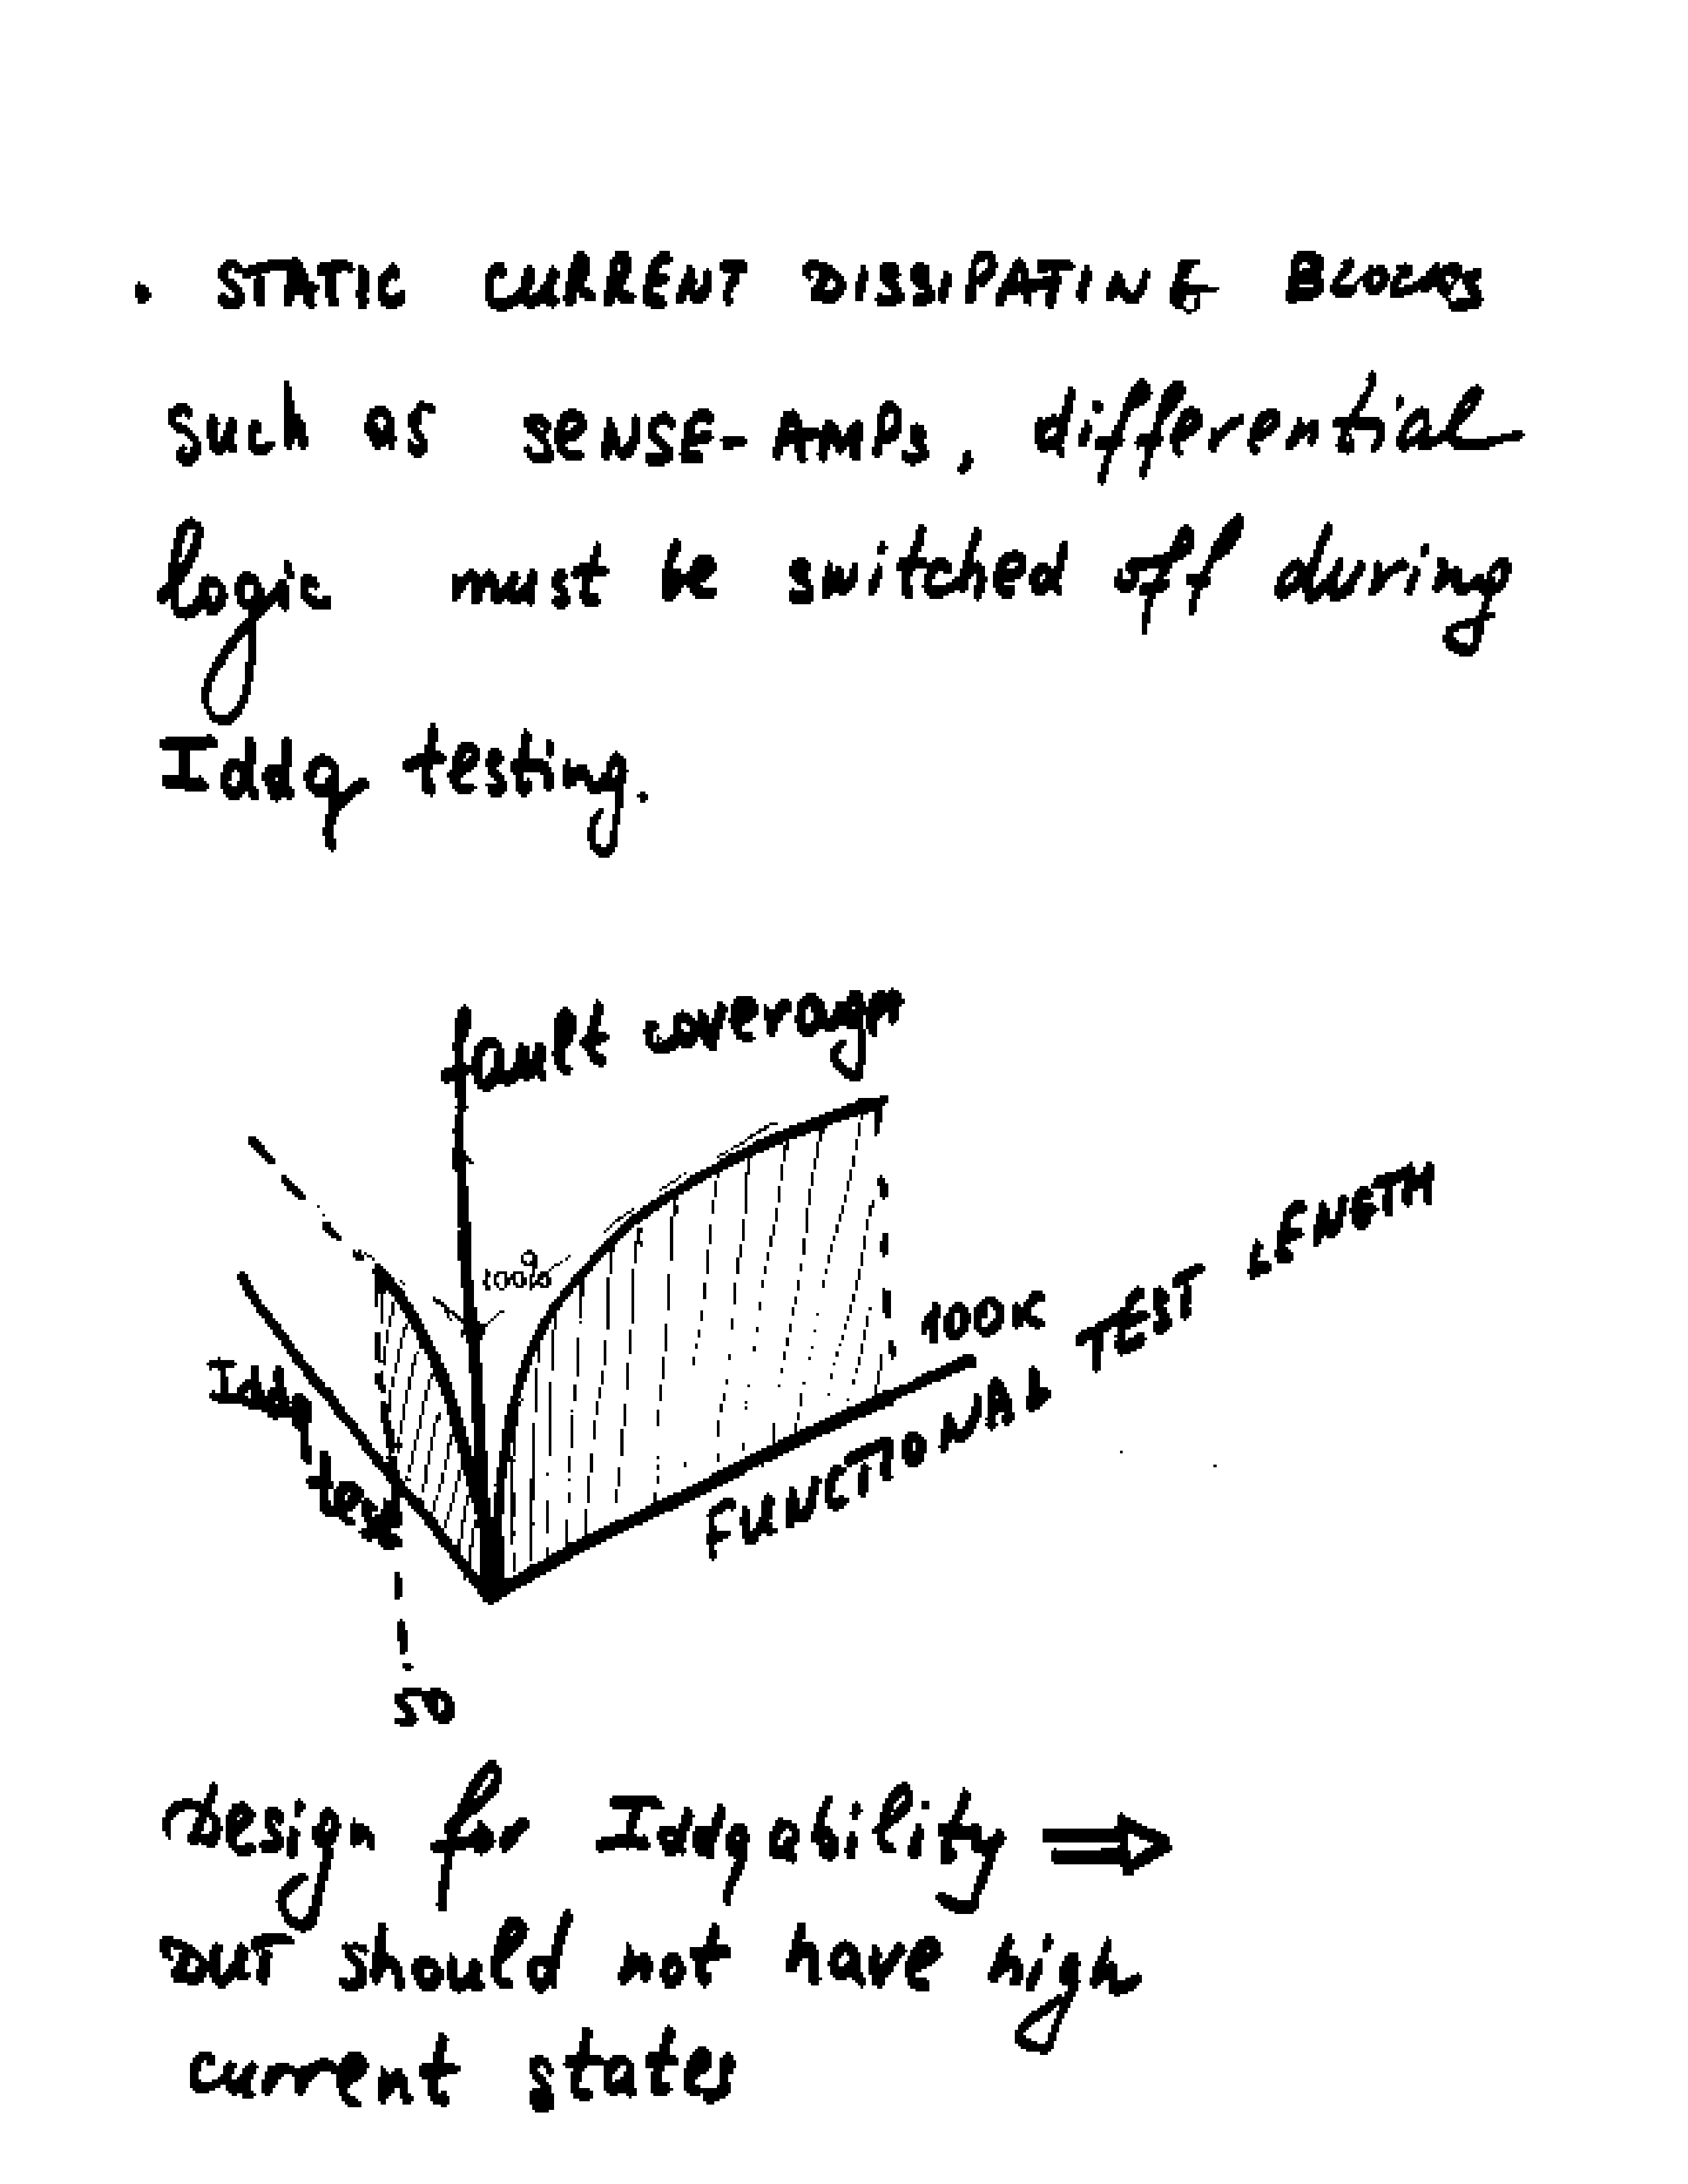 . STATIC CURRENT DISSIPATING BLOCKS
such as SENSE-AMPs, differential
logic must be switched off during
Iddq testing.
fault coverage
100%
100K
FUNCTIONAL TEST LENGTH
Iddq test
50
Design for Iddqability ⇒
DUT should not have high
current states